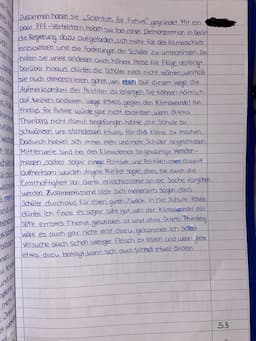 zusammen haben sie „Scientists for Future" gegründet. Mit ein
paar FFF-Vertretern haben sie bei einer Demonstration in Berlin
die Regierung dazu aufgefordert, sich mehr für den Klimaschutz
einzusetzen und die Forderungen der Schüler zu unterstützen. Da
haben sie unter anderem auch höhere Preise für Flüge verlangt.
Darüber hinaus dürfen die Schüler noch nicht wählen, weshalb
sie auch demonstrieren gehen, um eben auf diesem Wege die
Aufmerksamkeit der Politiker zu erlangen. Sie können nämlich
auf keinen anderen Wege etwas gegen den Klimawandel tun.
Fridays for Future würde gar nicht existieren, wenn Greta
Thunberg nicht damit angefangen hätte, die Schule zu
schwänzen, um stattdessen etwas für das Klima zu machen.
Dadurch haben sich immer mehr und mehr Schüler angeschlossen.
Mittlerweile sind bei den Klimademos tausendfältige Mensch-
massen, sodass sogar einige Politiker und Politikerinnen darauf
aufmerksam wurden. Angela Merkel sagte, dass sie durch die
Ernsthaftigkeit von Greta entschlossener an die Sache rangehen
werden. Zusammenfassend lässt sich meinerseits sagen, dass
Schüler durchaus für einen guten Zweck in der Schule fehlen
dürfen. Ich finde es sogar sehr gut, weil der Klimawandel ein
sehr ernstes Thema geworden ist und ohne Greta Thunberg
wäre es auch gar nicht erst dazu gekommen. Ich selbst
versuche auch schon weniger Fleisch zu essen und wenn jeder
etwas dazu beiträgt, kann sich auch schnell etwas ändern.
53